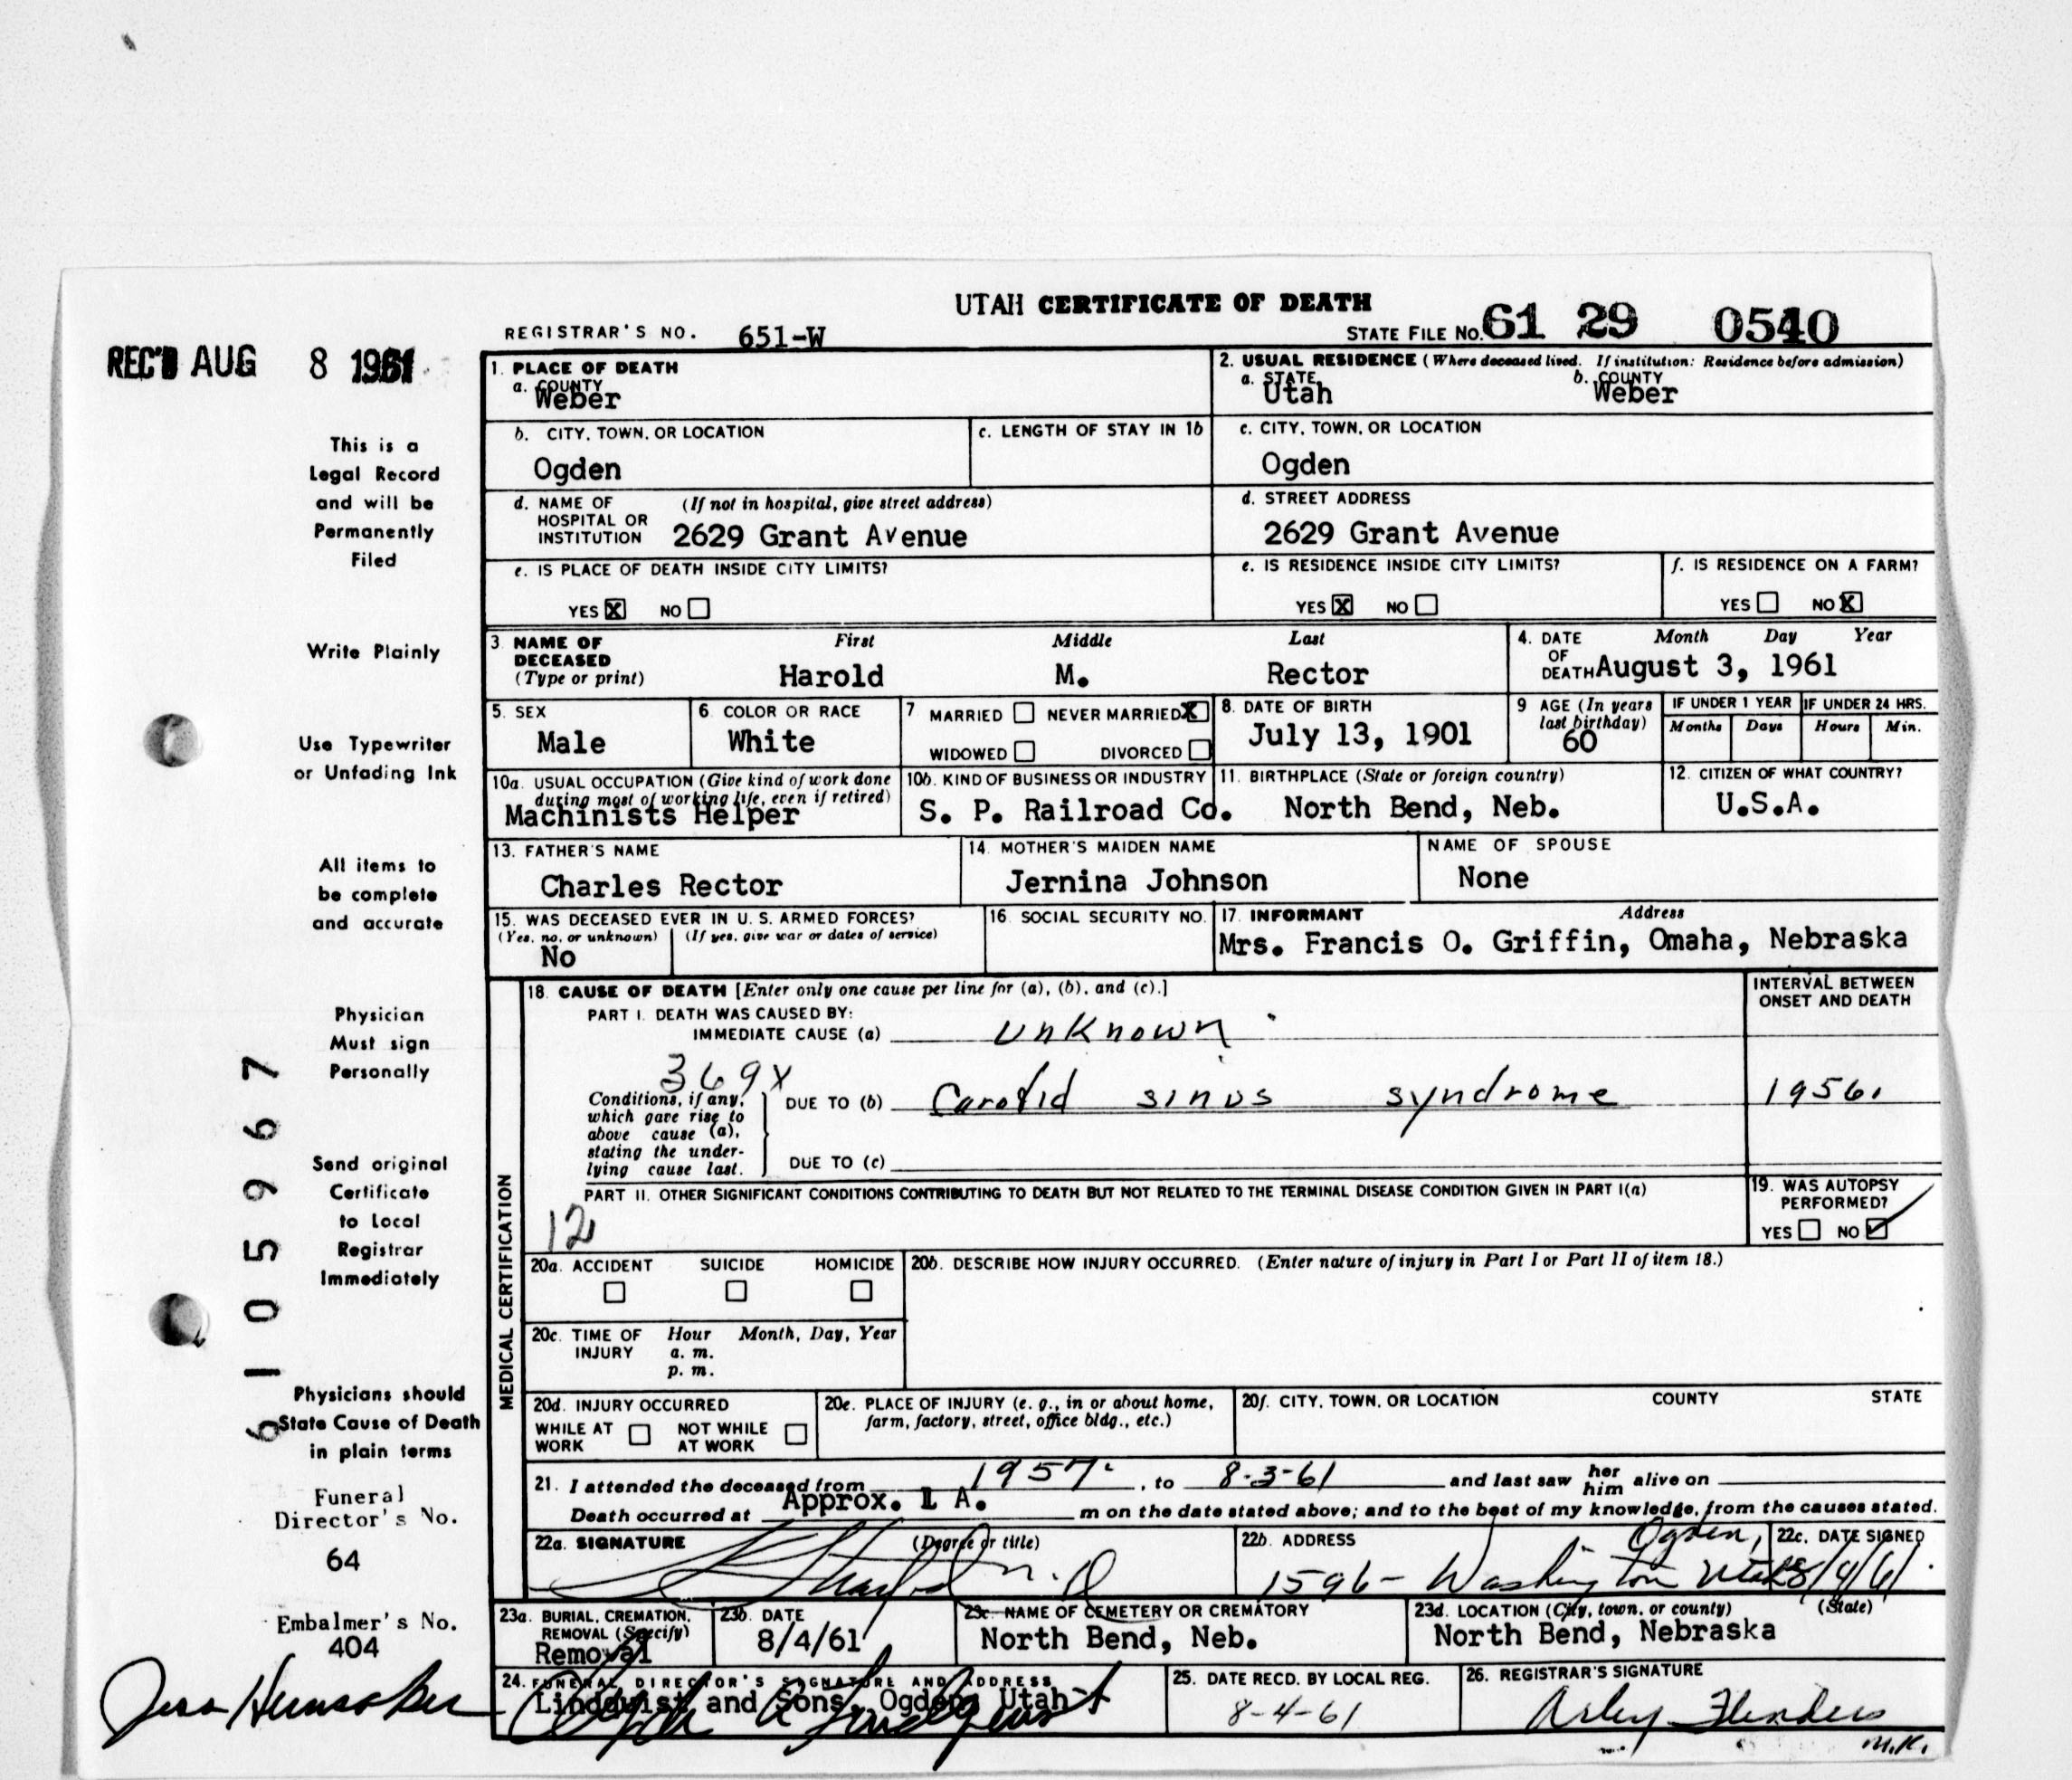 UTAH CERTIFICATE OF DEATH
REGISTRAR'S NO. 651-W
STATE FILE NO. 61 29 0540
REC'D AUG 8 1961
This is a
Legal Record
and will be
Permanently
Filed
Write Plainly
Use Typewriter
or Unfading Ink
All items to
be complete
and accurate
Physician
Must sign
Personally
Send original
Certificate
to Local
Registrar
Immediately
Physicians should
State Cause of Death
in plain terms
6105967
Funeral
Director's No.
64
Embalmer's No.
404
1. PLACE OF DEATH
a. COUNTY
Weber
2. USUAL RESIDENCE (Where deceased lived. If institution: Residence before admission)
a. STATE b. COUNTY
Utah Weber
b. CITY, TOWN, OR LOCATION
Ogden
c. LENGTH OF STAY IN 1b
c. CITY, TOWN, OR LOCATION
Ogden
d. NAME OF (If not in hospital, give street address)
HOSPITAL OR
INSTITUTION 2629 Grant Avenue
d. STREET ADDRESS
2629 Grant Avenue
e. IS PLACE OF DEATH INSIDE CITY LIMITS?
YES X NO
e. IS RESIDENCE INSIDE CITY LIMITS?
YES X NO
f. IS RESIDENCE ON A FARM?
YES NO X
3 NAME OF First Middle Last
DECEASED
(Type or print) Harold M. Rector
4. DATE Month Day Year
OF
DEATH August 3, 1961
5. SEX
Male
6. COLOR OR RACE
White
7 MARRIED NEVER MARRIED X
WIDOWED DIVORCED
8. DATE OF BIRTH
July 13, 1901
9 AGE (In years
last birthday)
60
IF UNDER 1 YEAR IF UNDER 24 HRS.
Months Days Hours Min.
10a. USUAL OCCUPATION (Give kind of work done
during most of working life, even if retired)
Machinists Helper
10b. KIND OF BUSINESS OR INDUSTRY
S. P. Railroad Co.
11. BIRTHPLACE (State or foreign country)
North Bend, Neb.
12. CITIZEN OF WHAT COUNTRY?
U.S.A.
13. FATHER'S NAME
Charles Rector
14. MOTHER'S MAIDEN NAME
Jernina Johnson
NAME OF SPOUSE
None
15. WAS DECEASED EVER IN U. S. ARMED FORCES?
(Yes, no, or unknown) (If yes, give war or dates of service)
No
16. SOCIAL SECURITY NO.
17. INFORMANT Address
Mrs. Francis O. Griffin, Omaha, Nebraska
MEDICAL CERTIFICATION
18. CAUSE OF DEATH [Enter only one cause per line for (a), (b), and (c).]
INTERVAL BETWEEN
ONSET AND DEATH
PART I. DEATH WAS CAUSED BY:
IMMEDIATE CAUSE (a) unknown
369X
Conditions, if any,
which gave rise to
above cause (a),
stating the under-
lying cause last.
DUE TO (b) Carotid sinus syndrome 1956.
DUE TO (c)
PART II. OTHER SIGNIFICANT CONDITIONS CONTRIBUTING TO DEATH BUT NOT RELATED TO THE TERMINAL DISEASE CONDITION GIVEN IN PART I(a)
12
19. WAS AUTOPSY
PERFORMED?
YES NO ✓
20a. ACCIDENT SUICIDE HOMICIDE
20b. DESCRIBE HOW INJURY OCCURRED. (Enter nature of injury in Part I or Part II of item 18.)
20c. TIME OF Hour Month, Day, Year
INJURY a. m.
p. m.
20d. INJURY OCCURRED
WHILE AT NOT WHILE
WORK AT WORK
20e. PLACE OF INJURY (e. g., in or about home,
farm, factory, street, office bldg., etc.)
20f. CITY, TOWN, OR LOCATION COUNTY STATE
21. I attended the deceased from 1957. , to 8-3-61 and last saw her him alive on
Death occurred at Approx. 1 A. m on the date stated above; and to the best of my knowledge, from the causes stated.
22a. SIGNATURE (Degree or title)
M.D
22b. ADDRESS
1596- Washington Ogden, Utah
22c. DATE SIGNED
8/4/61.
23a. BURIAL, CREMATION,
REMOVAL (Specify)
Removal
23b. DATE
8/4/61
23c. NAME OF CEMETERY OR CREMATORY
North Bend, Neb.
23d. LOCATION (City, town, or county) (State)
North Bend, Nebraska
24. FUNERAL DIRECTOR'S SIGNATURE AND ADDRESS
Lindquist and Sons, Ogden, Utah
25. DATE RECD. BY LOCAL REG.
8-4-61
26. REGISTRAR'S SIGNATURE
M.K.